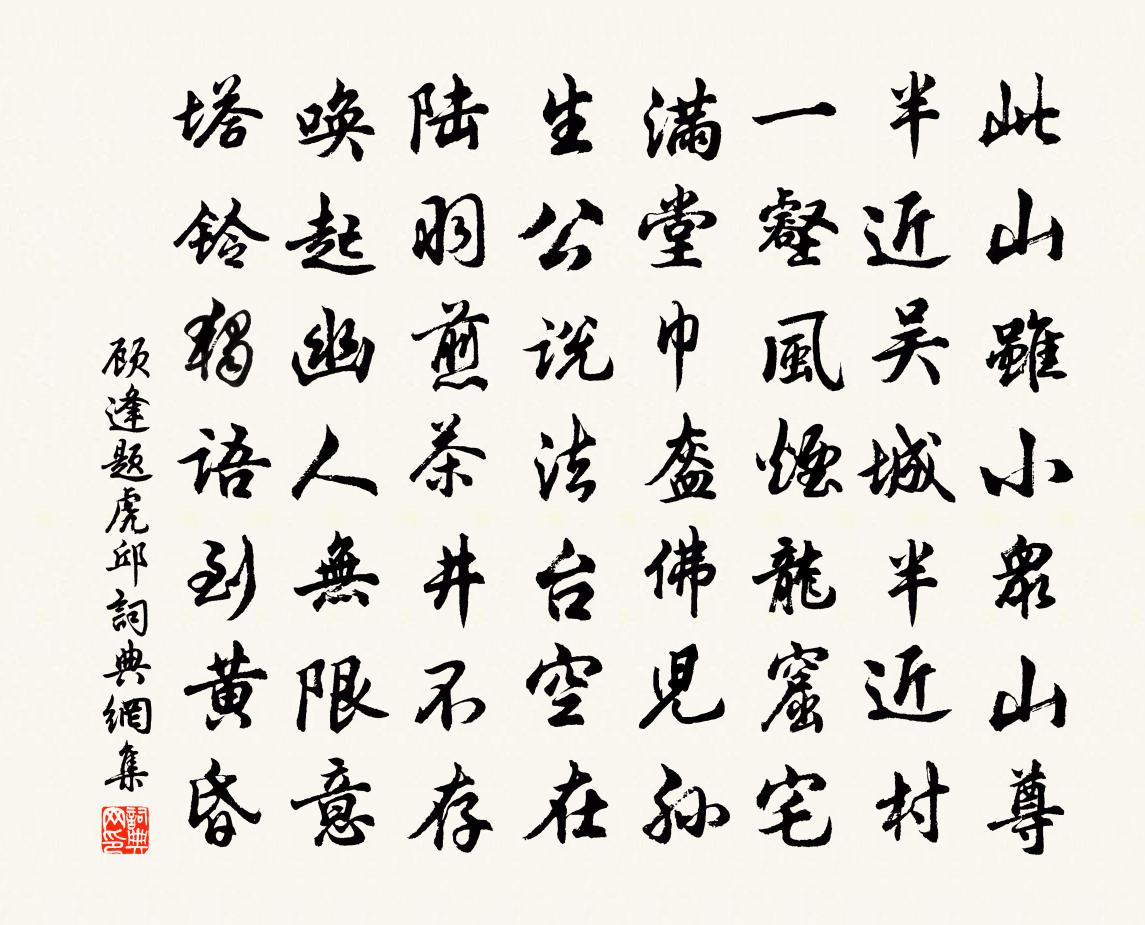 此山雖小衆山尊
半近吴城半近村
一壑風煙龍窟宅
滿堂巾盔佛児孙
生公说法台空在
陆羽煎茶井不存
唤起幽人無限意
塔铃独语到黄昏
顾逢题虎邱詞典網集
詞典网印